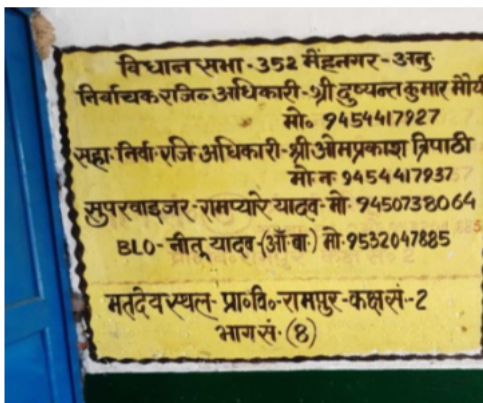 विधान सभा-352 मेंहनगर-अनु.
निर्वाचक रजि० अधिकारी-श्री दुष्यन्त कुमार मौर्य
मो० 9454417927
सहा. निर्वा. रजि अधिकारी-श्री ओमप्रकाश त्रिपाठी
मो न. 9454417937
सुपरवाइजर-रामप्यारे यादव-मो. 9450738064
BLO-नीतू यादव-(आँ.बा.) मो.9532047885
मतदेय स्थल-प्रा०वि०-रामपुर-कक्ष सं.-2
भाग सं. (8)